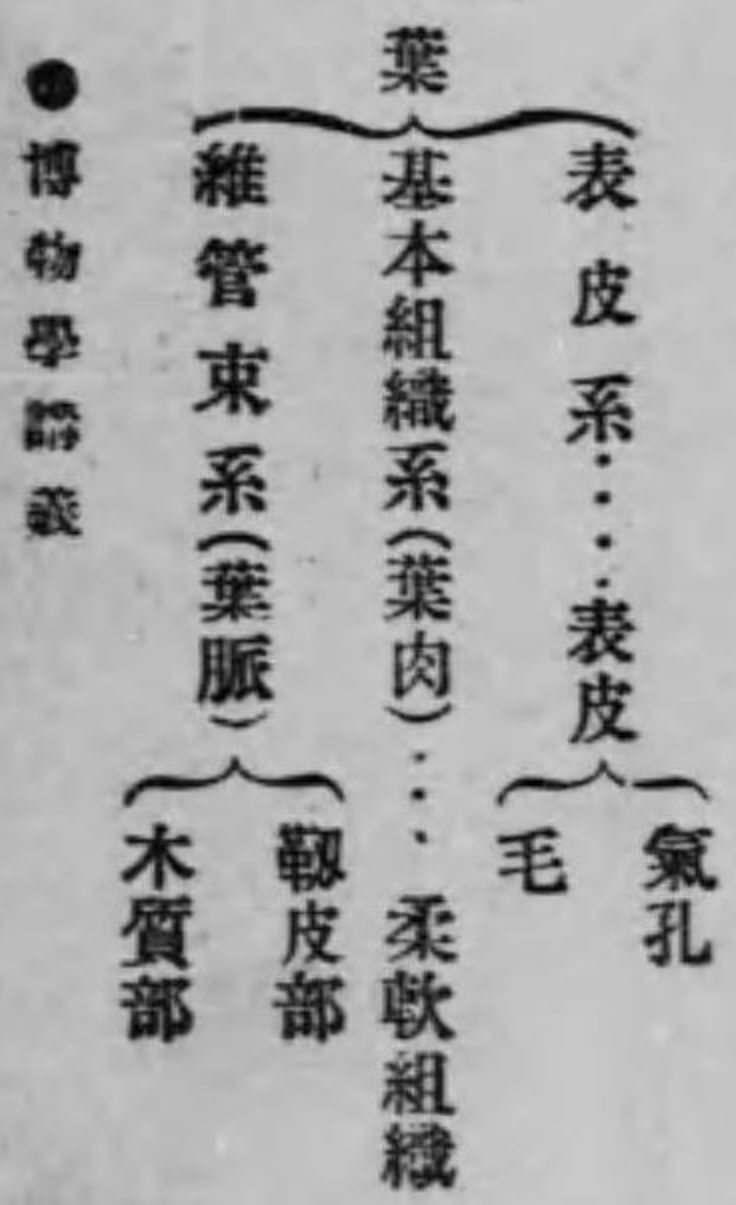 葉
表皮系････表皮
氣孔
毛
基本組織系(葉肉)･･･柔軟組織
維管束系(葉脈)
靱皮部
木質部
●博物學講義